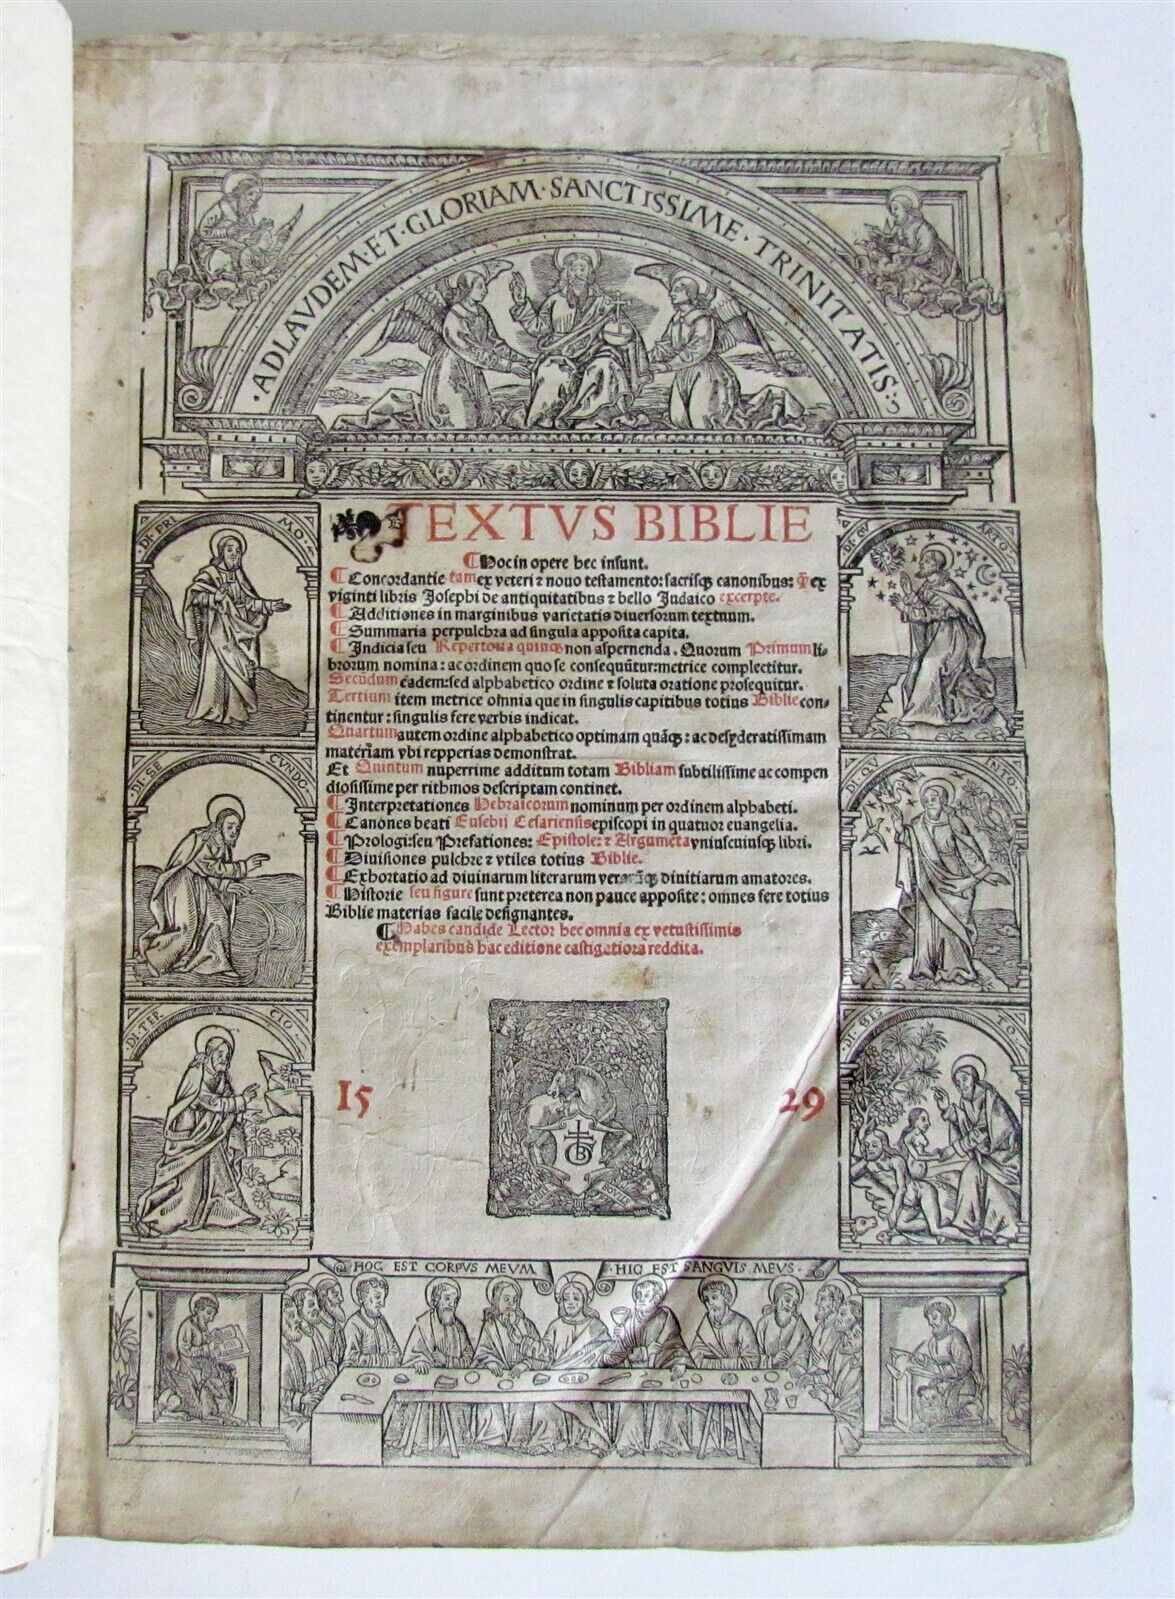 ·AD LAVDEM·ET·GLORIAM·SANCTISSIME·TRINITATIS:
TEXTVS BIBLIE
¶Hoc in opere hec insunt.
¶Concordantie tam ex veteri ⁊ nouo testamento: sacrisq; canonibus: q̃ ex
viginti libris Josephi de antiquitatibus ⁊ bello Judaico excerpte.
¶Additiones in marginibus varietatis diuersorum textuum.
¶Summaria perpulchra ad singula apposita capita.
¶Indicia seu Repertoria quinq; non aspernenda. Quorum Primum li-
brorum nomina: ac ordinem quo se consequũtur: metrice complectitur.
Secũdum eadem: sed alphabetico ordine ⁊ soluta oratione prosequitur.
Tertium item metrice omnia que in singulis capitibus totius Biblie con-
tinentur: singulis fere verbis indicat.
Quartum autem ordine alphabetico optimam quãq;: ac desyderatissimam
materiam vbi repperias demonstrat.
Et Quintum nuperrime additum totam Bibliam subtilissime ac compen
diosissime per rithmos descriptam continet.
¶Interpretationes Hebraicorum nominum per ordinem alphabeti.
¶Canones beati Eusebij Cesariensis episcopi in quatuor euangelia.
¶Prologi: seu Prefationes: Epistole: ⁊ Argumẽta vniuscuiusq; libri.
¶Diuisiones pulchre ⁊ vtiles totius Biblie.
¶Exhortatio ad diuinarum literarum verarũq; diuitiarum amatores.
¶Historie seu figure sunt preterea non pauce apposite: omnes fere totius
Biblie materias facile designantes.
¶Habes candide Lector hec omnia ex vetustissimis
exemplaribus hac editione castigatiora reddita.
DI·PRI MO·
DI·SE CVNDO·
DI·TER CIO·
DI·QV ARTO·
DI·QV INTO·
DI·SES TO·
15 29
GB
GVIL BOVLE
HOC EST CORPVS MEVM
·HIC EST SANGVIS MEVS·